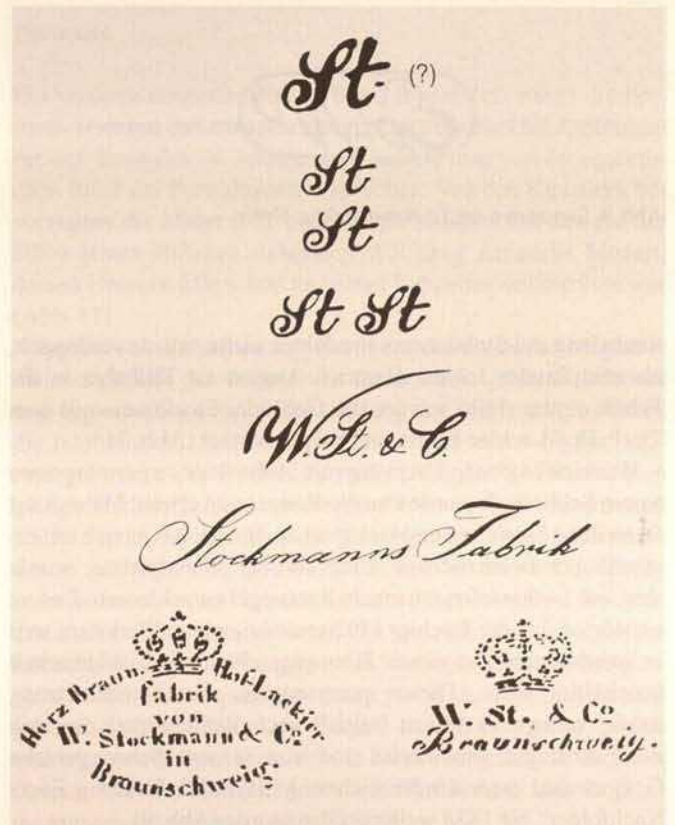 St. (?)
St
St
St St
W. St. & C.
Stockmanns Fabrik
Herz Braun. Hof. Lackir
fabrik
von
W. Stockmann & Co.
in
Braunschweig.
W. St. & Co
Braunschweig.